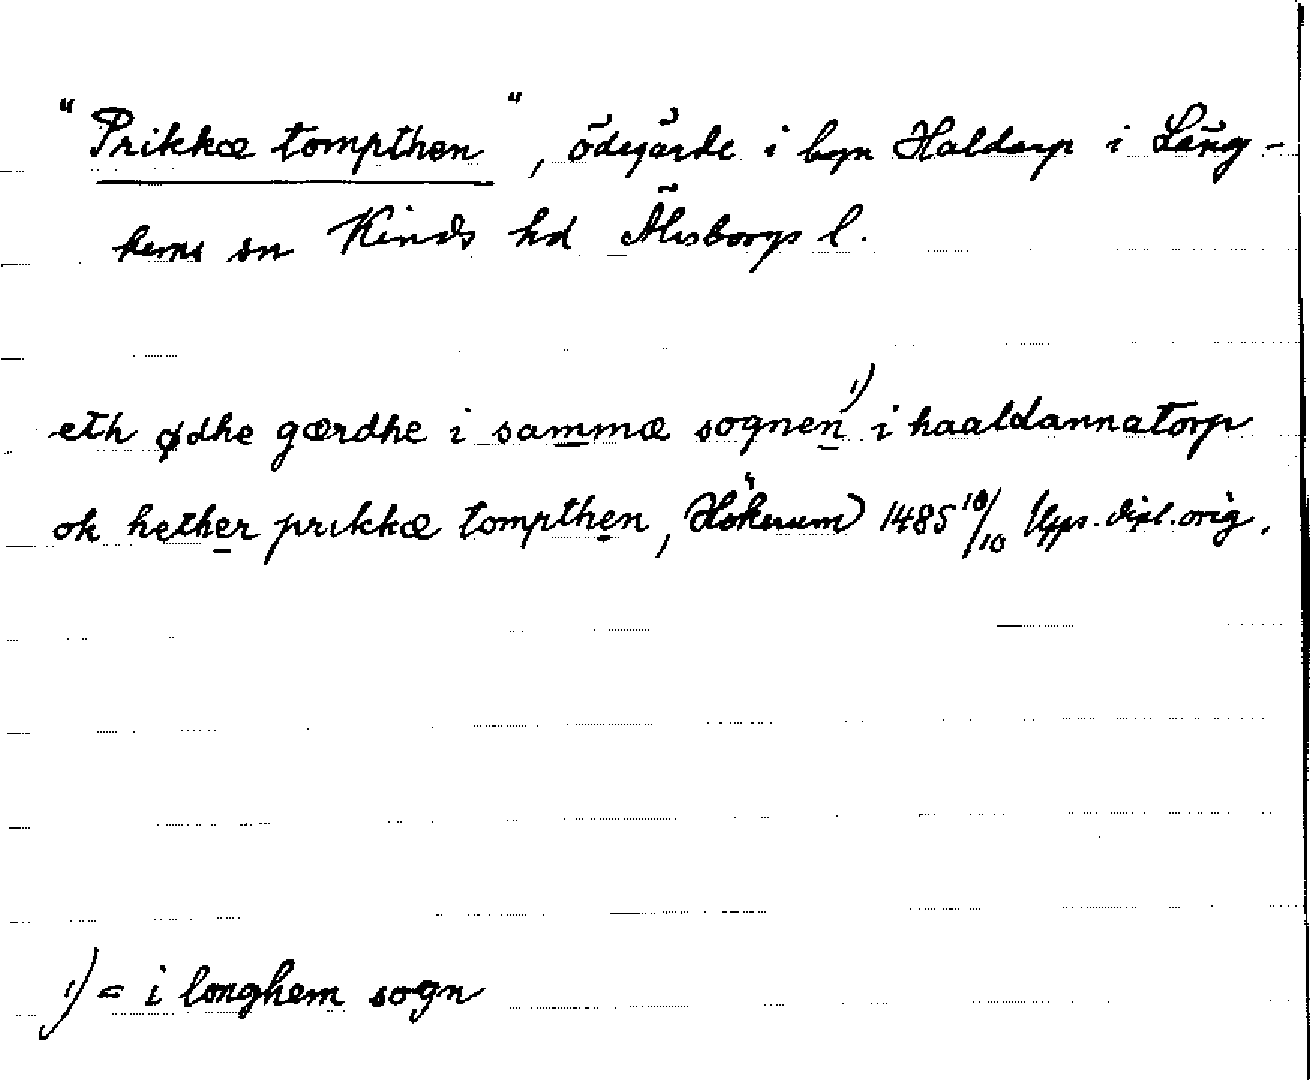 "Prikkæ tompthen", ödegärde i byn Haldorp i Lång-
hems sn Kinds hd Älvsborgs l.
eth ødhe gærdhe i sammæ sognen 1) i haaldannatorp
ok hether prikkæ tompthen, Hökerum 1485 18/10 Upps. dipl. orig.
1) = i longhem sogn